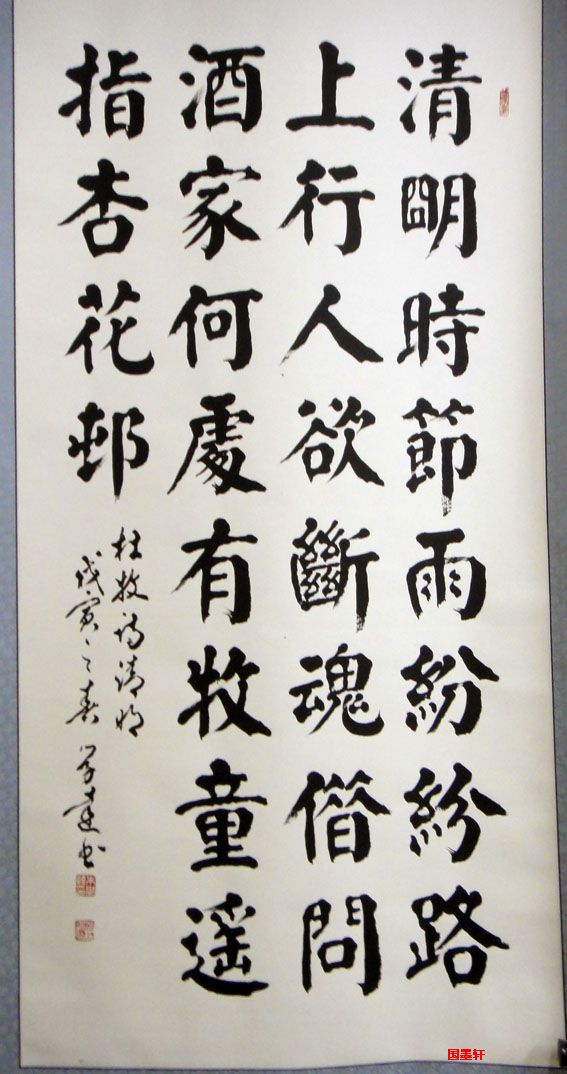 清朙時節雨紛紛路
上行人欲斷魂借問
酒家何處有牧童遙
指杏花邨
杜牧诗清明
戊寅之春 书
国墨轩